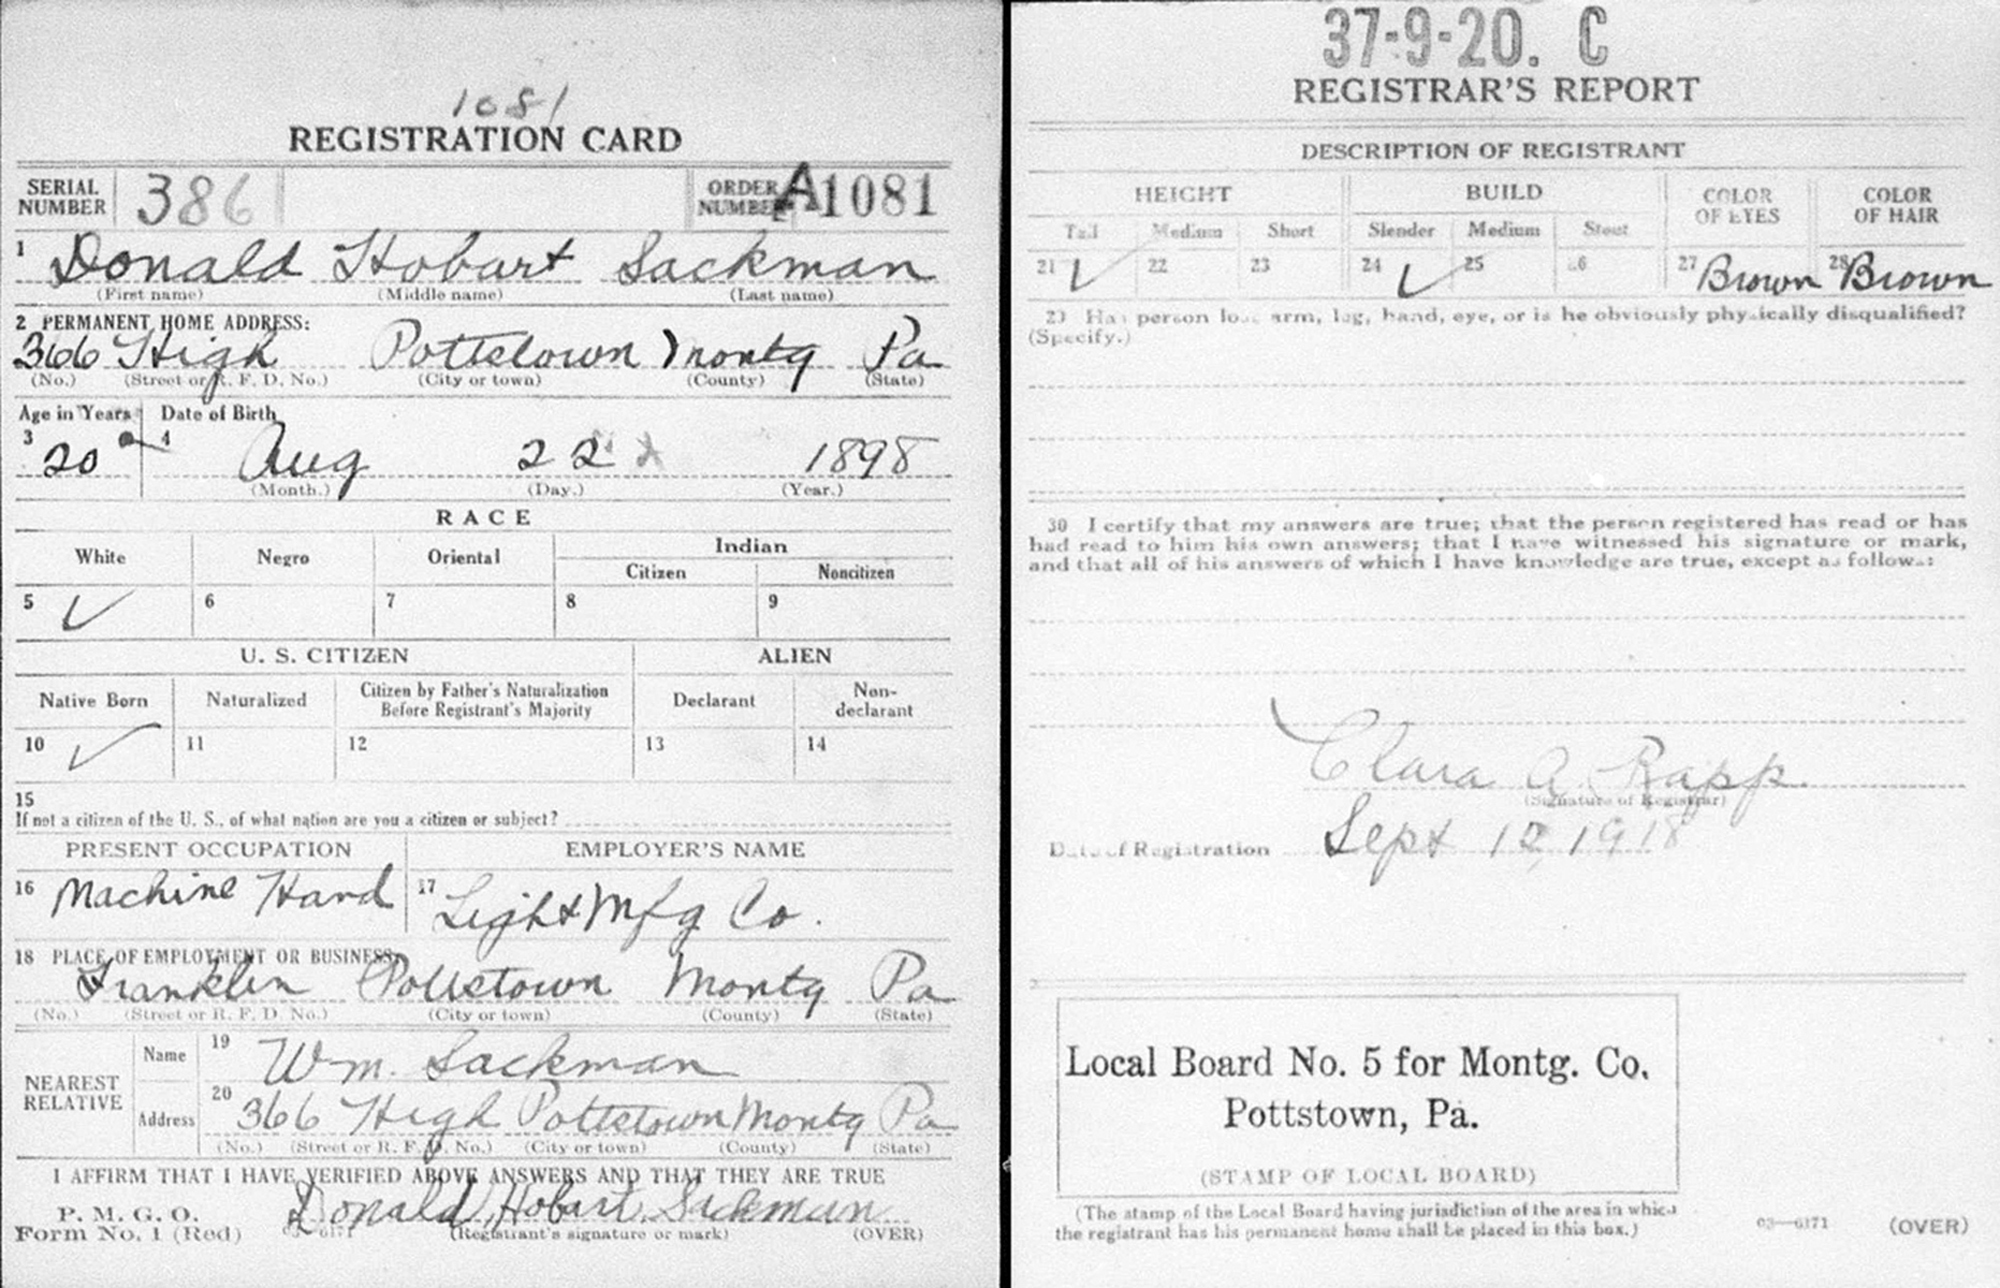 1081
REGISTRATION CARD
SERIAL NUMBER 386 ORDER NUMBER A1081
1 Donald Hobart Sackman
(First name) (Middle name) (Last name)
2 PERMANENT HOME ADDRESS:
366 High Pottstown Montg Pa
(No.) (Street or R. F. D. No.) (City or town) (County) (State)
Age in Years Date of Birth
3 20 4 Aug 22 1898
(Month.) (Day.) (Year.)
RACE
White Negro Oriental Indian
Citizen Noncitizen
5 ✓ 6 7 8 9
U. S. CITIZEN ALIEN
Native Born Naturalized Citizen by Father's Naturalization Before Registrant's Majority Declarant Non-declarant
10 ✓ 11 12 13 14
15
If not a citizen of the U. S., of what nation are you a citizen or subject?
PRESENT OCCUPATION EMPLOYER'S NAME
16 Machine Hand 17 Light Mfg Co.
18 PLACE OF EMPLOYMENT OR BUSINESS:
Franklin Pottstown Montg Pa
(No.) (Street or R. F. D. No.) (City or town) (County) (State)
NEAREST RELATIVE
Name 19 Wm. Sackman
Address 20 366 High Pottstown Montg Pa
(No.) (Street or R. F. D. No.) (City or town) (County) (State)
I AFFIRM THAT I HAVE VERIFIED ABOVE ANSWERS AND THAT THEY ARE TRUE
P. M. G. O.
Form No. 1 (Red) Donald Hobart Sackman
03—6171 (Registrant's signature or mark) (OVER)
37-9-20. C
REGISTRAR'S REPORT
DESCRIPTION OF REGISTRANT
HEIGHT BUILD COLOR OF EYES COLOR OF HAIR
Tall Medium Short Slender Medium Stout
21 ✓ 22 23 24 ✓ 25 26 27 Brown 28 Brown
29 Has person lost arm, leg, hand, eye, or is he obviously physically disqualified?
(Specify.)
30 I certify that my answers are true; that the person registered has read or has
had read to him his own answers; that I have witnessed his signature or mark,
and that all of his answers of which I have knowledge are true, except as follows:
Clara A. Rapp
(Signature of Registrar)
Date of Registration Sept 12, 1918
Local Board No. 5 for Montg. Co.
Pottstown, Pa.
(STAMP OF LOCAL BOARD)
(The stamp of the Local Board having jurisdiction of the area in which
the registrant has his permanent home shall be placed in this box.)
03—6171 (OVER)